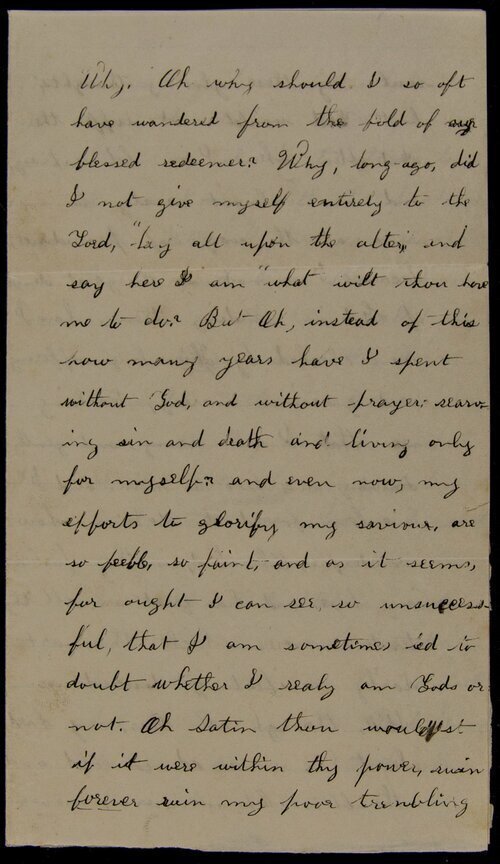 Why. Oh why should I so oft
have wandered from the fold of my
blessed redeemer? Why, long-ago, did
I not give myself entirely to the
Lord, "lay all upon the alter, and
say here I am "what wilt thou have
me to do? But Oh, instead of this
how many years have I spent
without God, and without prayer: searv-
ing sin and death and living only
for myself? and even now, my
efforts to glorify my saviour, are
so feeble, so faint, and as it seems,
for ought I can see, so unsucess-
ful, that I am sometimes led to
doubt whether I realy am Gods or
not. Oh Satin thou wouldst
if it were within thy power, ruin
forever ruin my poor trembling